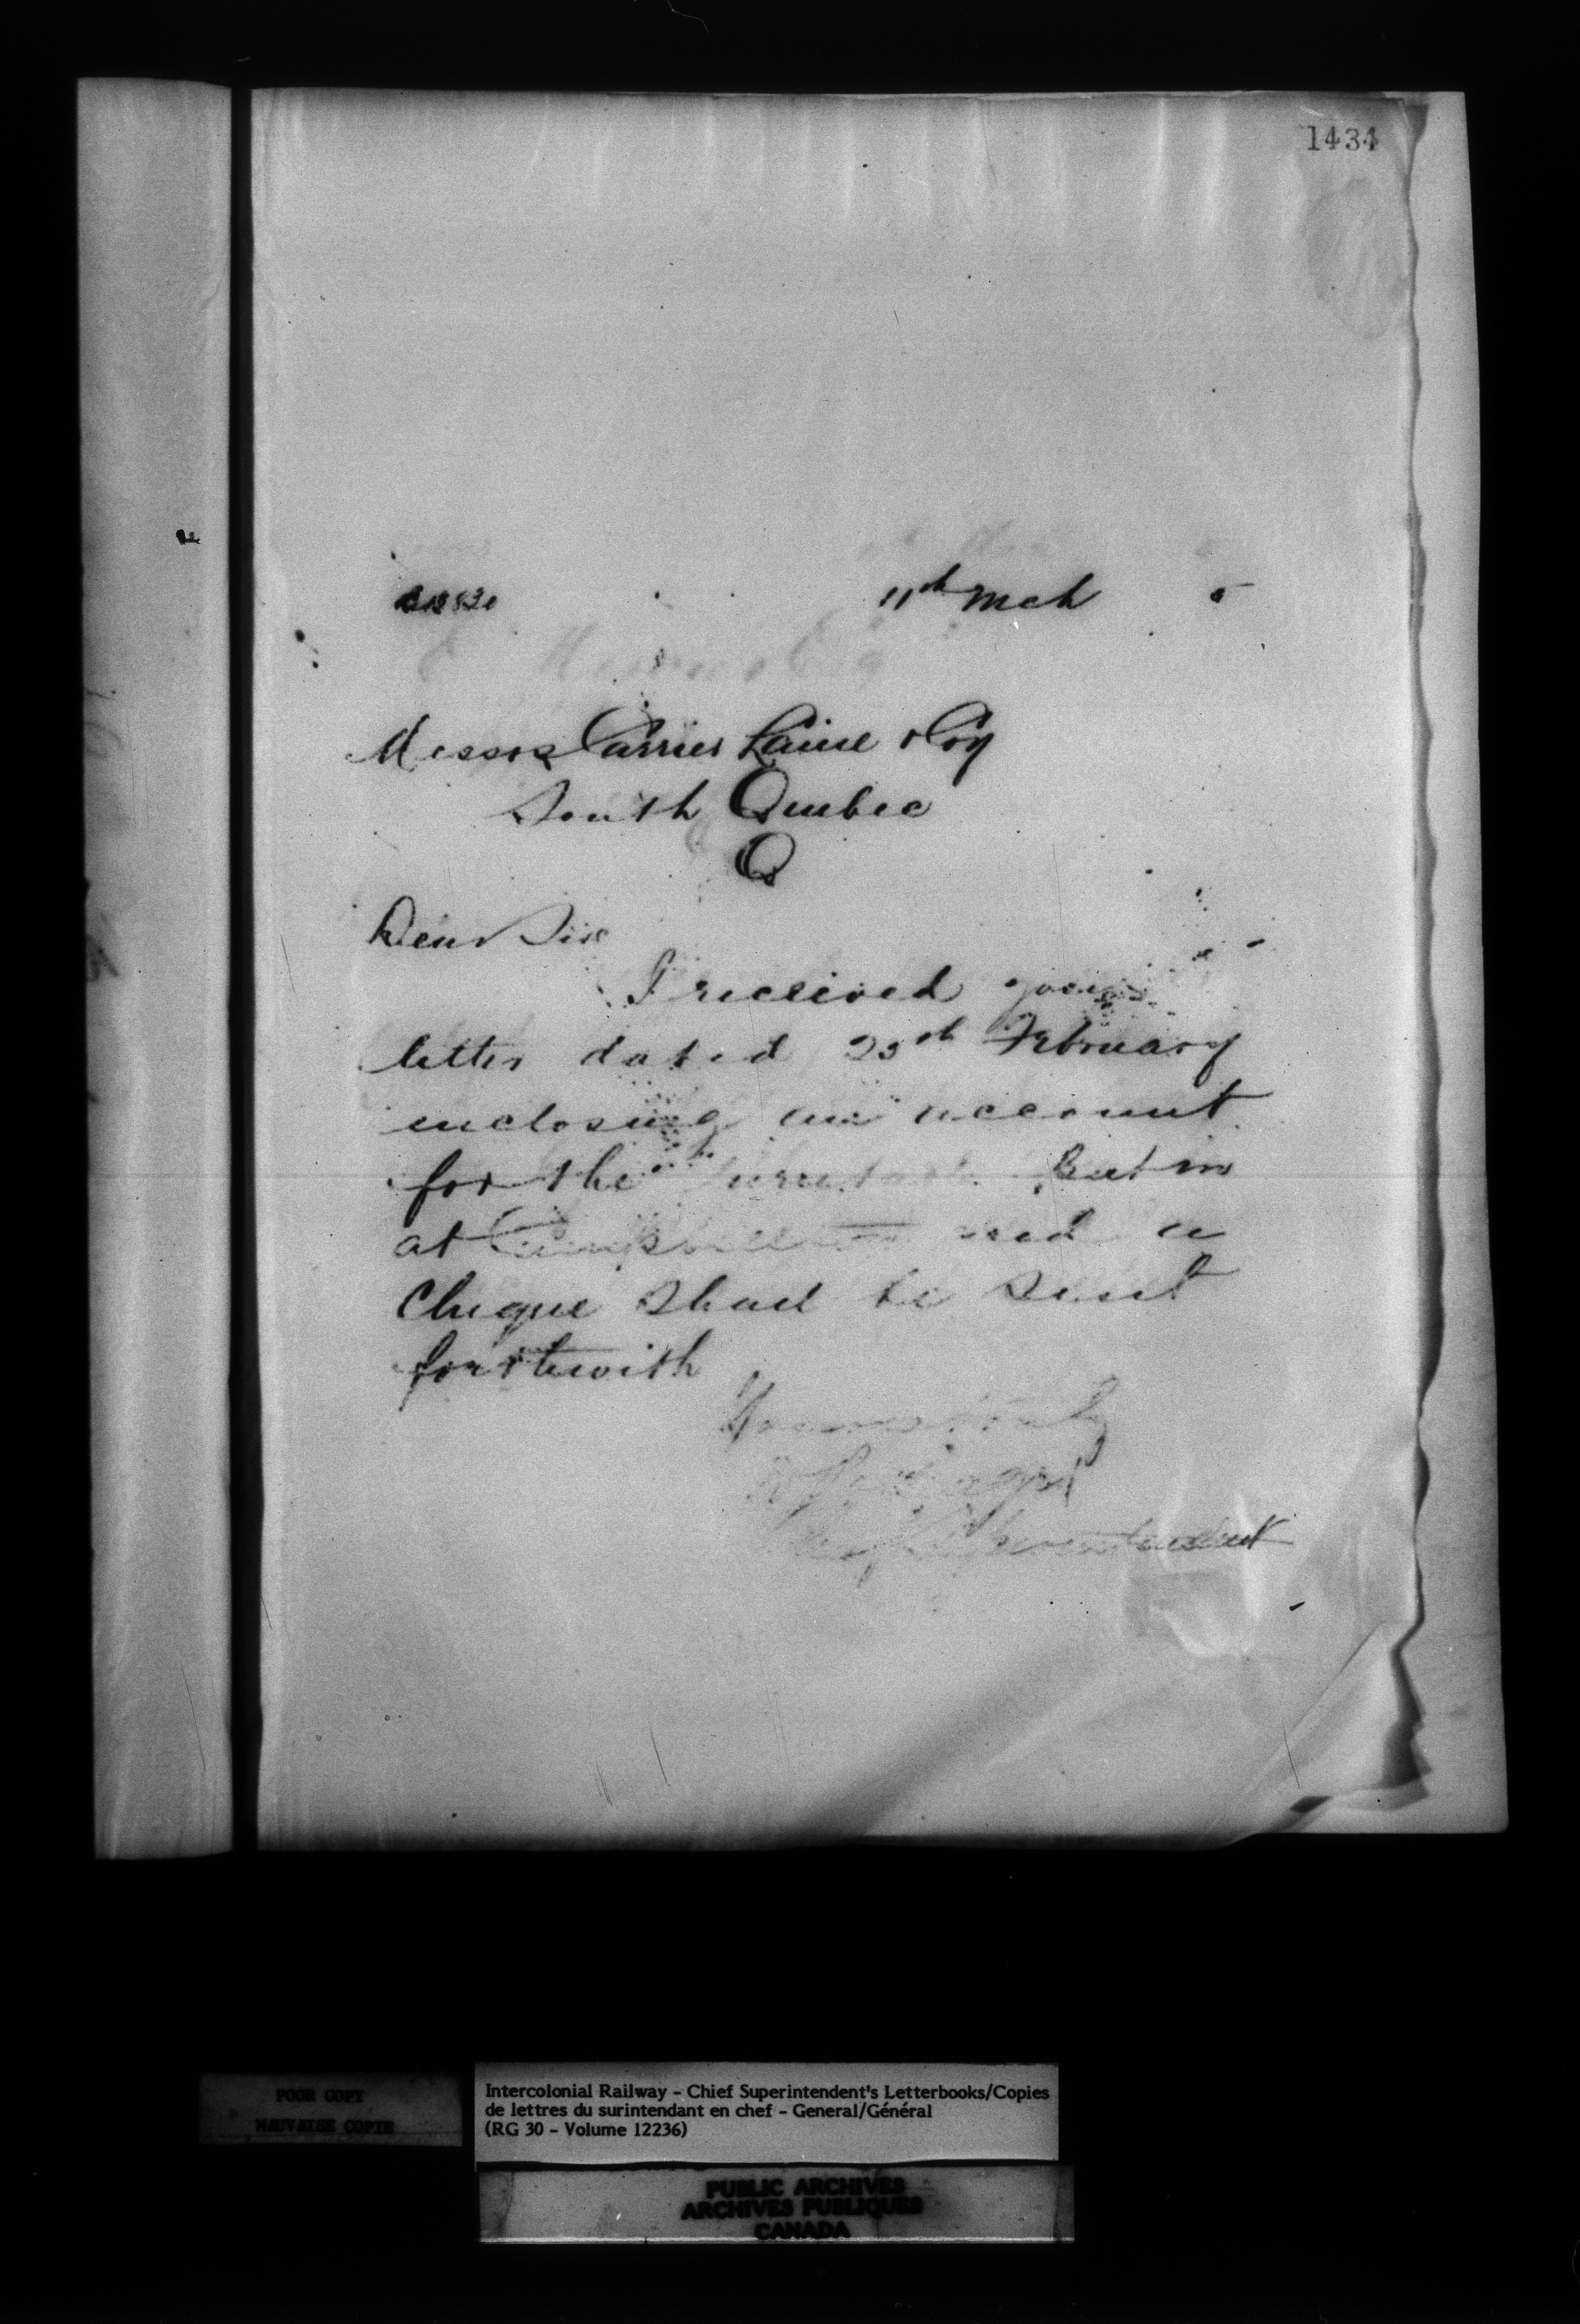 1434
11th Mch 5
Messrs Carrier Laine & Coy
South Quebec
Q
Dear Sir
I received your
letter dated February
enclosing an account
for the Put in
at Campbellton and a
Cheque shall be sent
forthewith
Yours truly
Chief Superintendent
POOR COPY
MAUVAISE COPIE
Intercolonial Railway - Chief Superintendent's Letterbooks/Copies
de lettres du surintendant en chef - General/Général
(RG 30 - Volume 12236)
PUBLIC ARCHIVES
ARCHIVES PUBLIQUES
CANADA